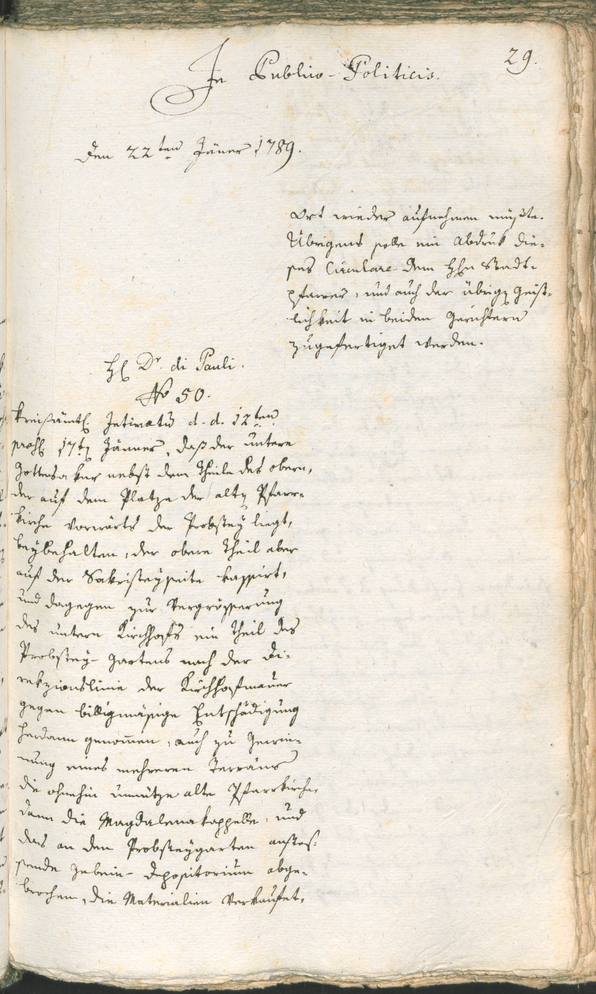 29.
In Publico-Politicis.
Den 22ten Jäner 1789.
Ort wieder aufnehmen müßte.
Übrigens solle ein Abdruk die-
ses Circulare dem Hhn Stadt-
pfarrer, und auch der übrign Geist-
lichkeit in beiden Gerichtern
zugefertiget werden.
H Dr. di Pauli.
No 50.
Kreisämtl Intimatum d. d. 12ten
praes 17tn Jänner, daß der untere
Gottesaker nebst dem Theile des obern,
der auf dem Platze der altn Pfarr-
kirche vorwärts der Probstey liegt,
beybehalten, der obere Theil aber
auf der Sakristeyseite kassirt,
und dagegen zur Vergrösserung
des untern Kirchhofs ein Theil des
Probstey-Gartens nach der Di-
rekzionslinie der Kirchhofmauer
gegen billigmäsige Entschädigung
herdann genommen, auch zu Gewin-
nung eines mehreren Terräns
die ohnehin unnütze alte Pfarrkirche,
dann die Magdalenakappelle, und
das an den Probsteygarten anstos-
sende Gebein-Depositorium abge-
brochen, die Materialien verkaufet,